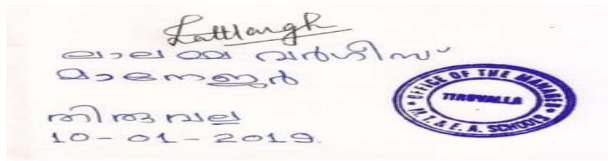 ലാലമ്മ വർഗീസ്
മാനേജർ
തിരുവല്ല
10-01-2019.
OFFICE OF THE MANAGER
TIRUVALLA
M.T. & E.A. SCHOOLS